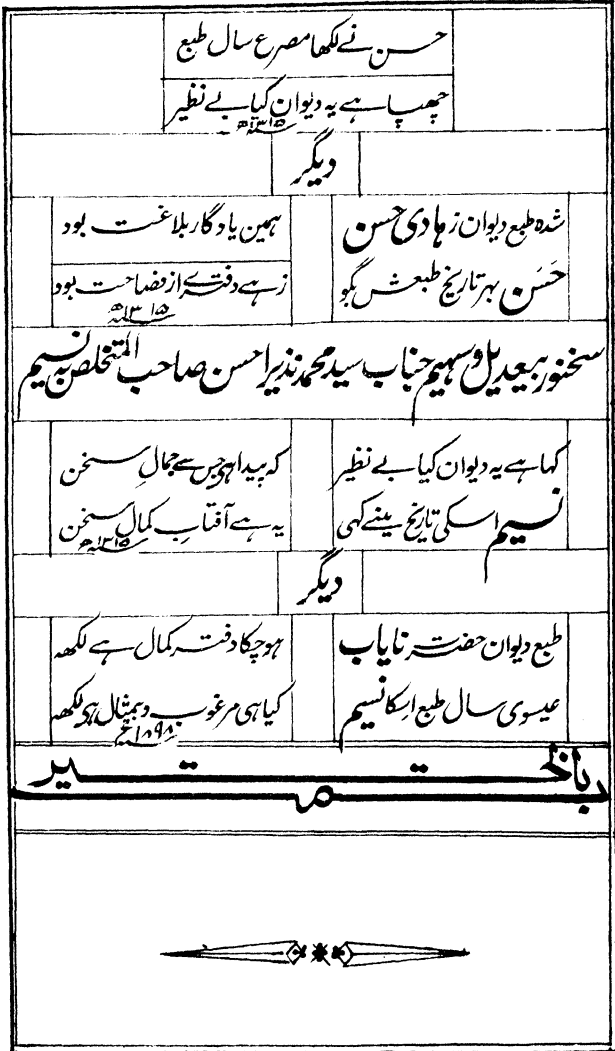 حسن نے لکھا مصرع سال طبع
چھپا ہے یہ دیوان کیا بے نظیر
سنہ ۱۳۱۵ھ
دیگر
شدہ طبع دیوان ز ہادی حسن
ہمین یادگار بلاغت بود
حَسَن بہر تاریخ طبعش بگو
زہے دفترے از فصاحت بود
سنہ ۱۳۱۵ھ
سخنور بیعدیل و سہیم جناب سید محمد نذیر احسن صاحب المتخلص بہ نسیم
کہا ہے یہ دیوان کیا بے نظیر
کہ پیدا ہی جس سے جمالِ سخن
نسیم اسکی تاریخ مینے کہی
یہ ہے آفتابِ کمال سخن
سنہ ۱۳۱۵ھ
دیگر
طبع دیوان حضرت نایاب
ہو چکا دفتر کمال ہے لکھہ
عیسوی سال طبع اسکا نسیم
کیا ہی مرغوب و بیمثال ہی لکھہ
سنہ ۱۸۹۸ع
تمت بالخیر